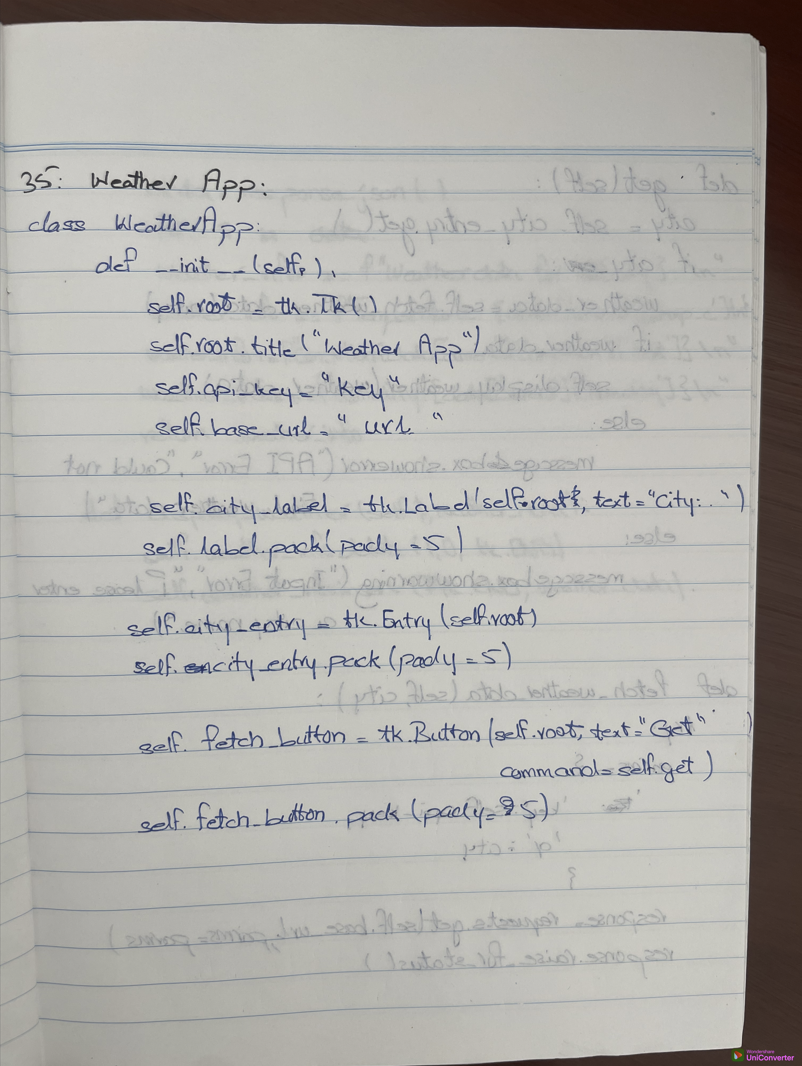 35: Weather App:
class WeatherApp:
def __init__(self,),
self.root = tk.Tk()
self.root.title("Weather App")
self.api_key = "Key"
self.base_url = "url"
self.city_label = tk.Label(self.root, text="City: ")
self.label.pack(pady=5)
self.city_entry = tk.Entry(self.root)
self.city_entry.pack(pady=5)
self.fetch_button = tk.Button(self.root, text="Get" )
command=self.get)
self.fetch_button.pack(pady=5)
Wondershare
UniConverter